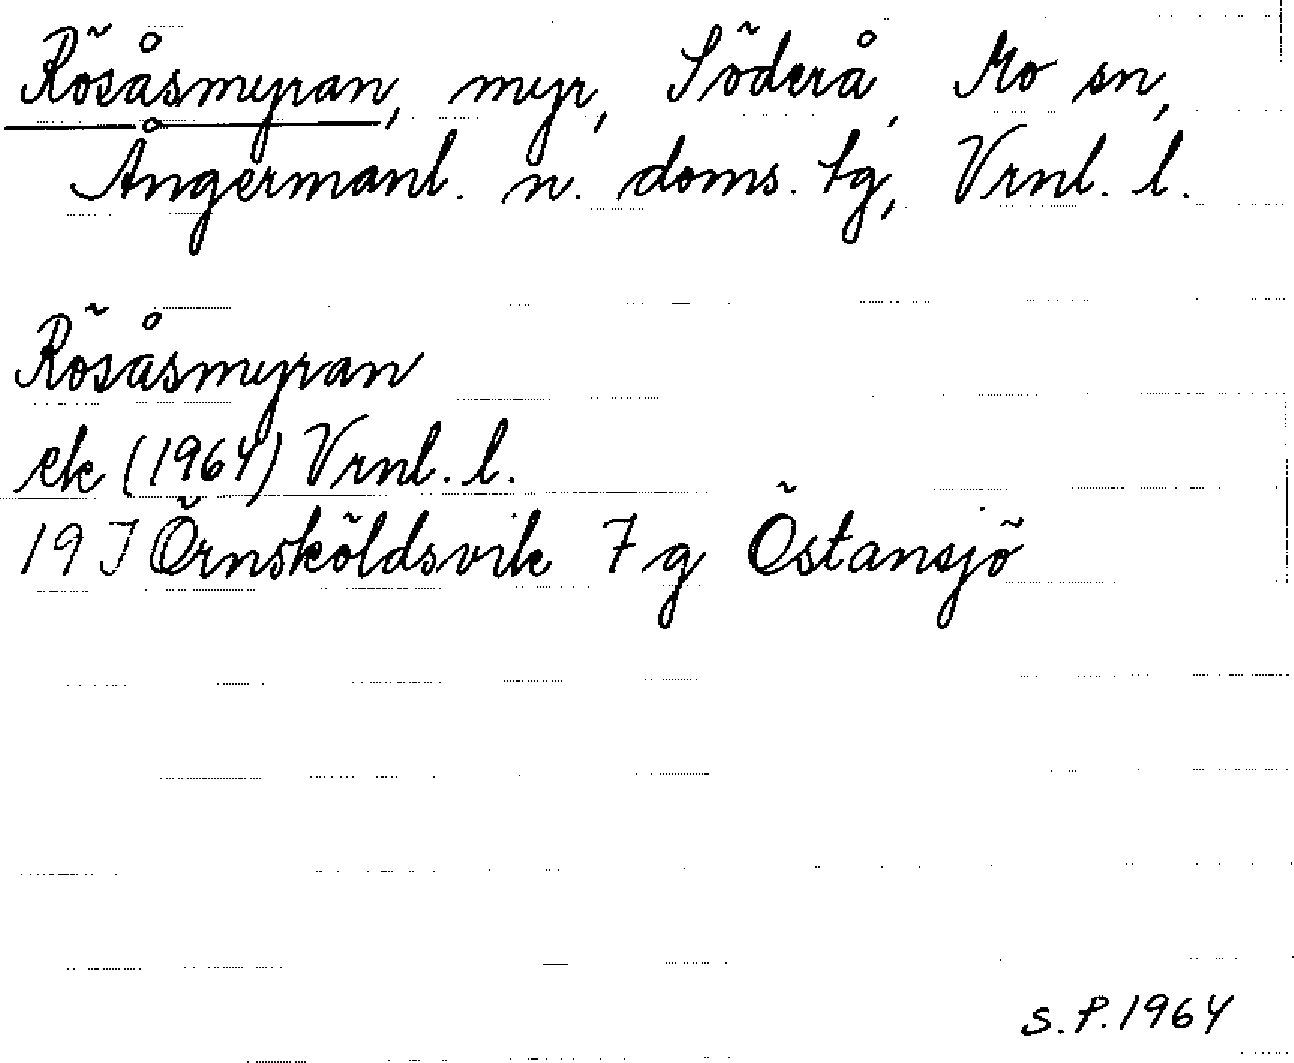 Rösåsmyran, myr, Söderå, Mo sn,
Ångermanl. n. doms. tg, Vrnl. l.
Rösåsmyran
ek (1964) Vrnl. l.
19 J Örnsköldsvik 7 g Östansjö
S. P. 1964